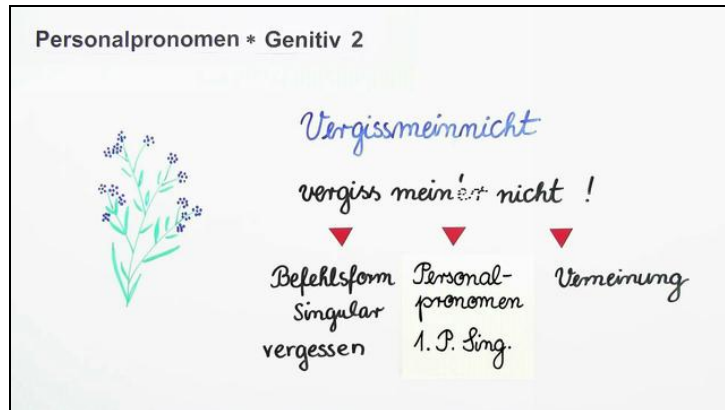 Personalpronomen * Genitiv 2
Vergissmeinnicht
vergiss mein'er nicht !
Befehlsform
Singular
vergessen
Personal-
pronomen
1. P. Sing.
Verneinung